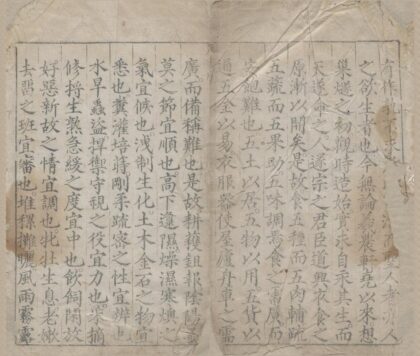 有作
之欲生者也今無論農軒堯以來想
巢燧之初觀時造始實求自永其生而
天遂命之人遂宗之君臣道興衣食之
原漸以開矣是故食五種而五內輔疏
五蔬而五果助五味調焉食之廣而
難也五土以居五物以用五貨以
通五全以易衣服器使屋廬舟車之需
廣而備稱難也是故耕穫鉏報陰陽
莫之節宜順也高下遠隰燥濕寒燠之
氣宜候也浅制生化土木金石之物宜
悉也糞灌培蒔剛柔疏密之性宜辨也
水旱蟲盜捍禦守視之役宜力也采摘
修捋生熟急緩之度宜中也飲飼闌放
好惡新故之情宜調也牝牡生息老嫰
去畱之班宜審也堆稞攤曬風雨霧露